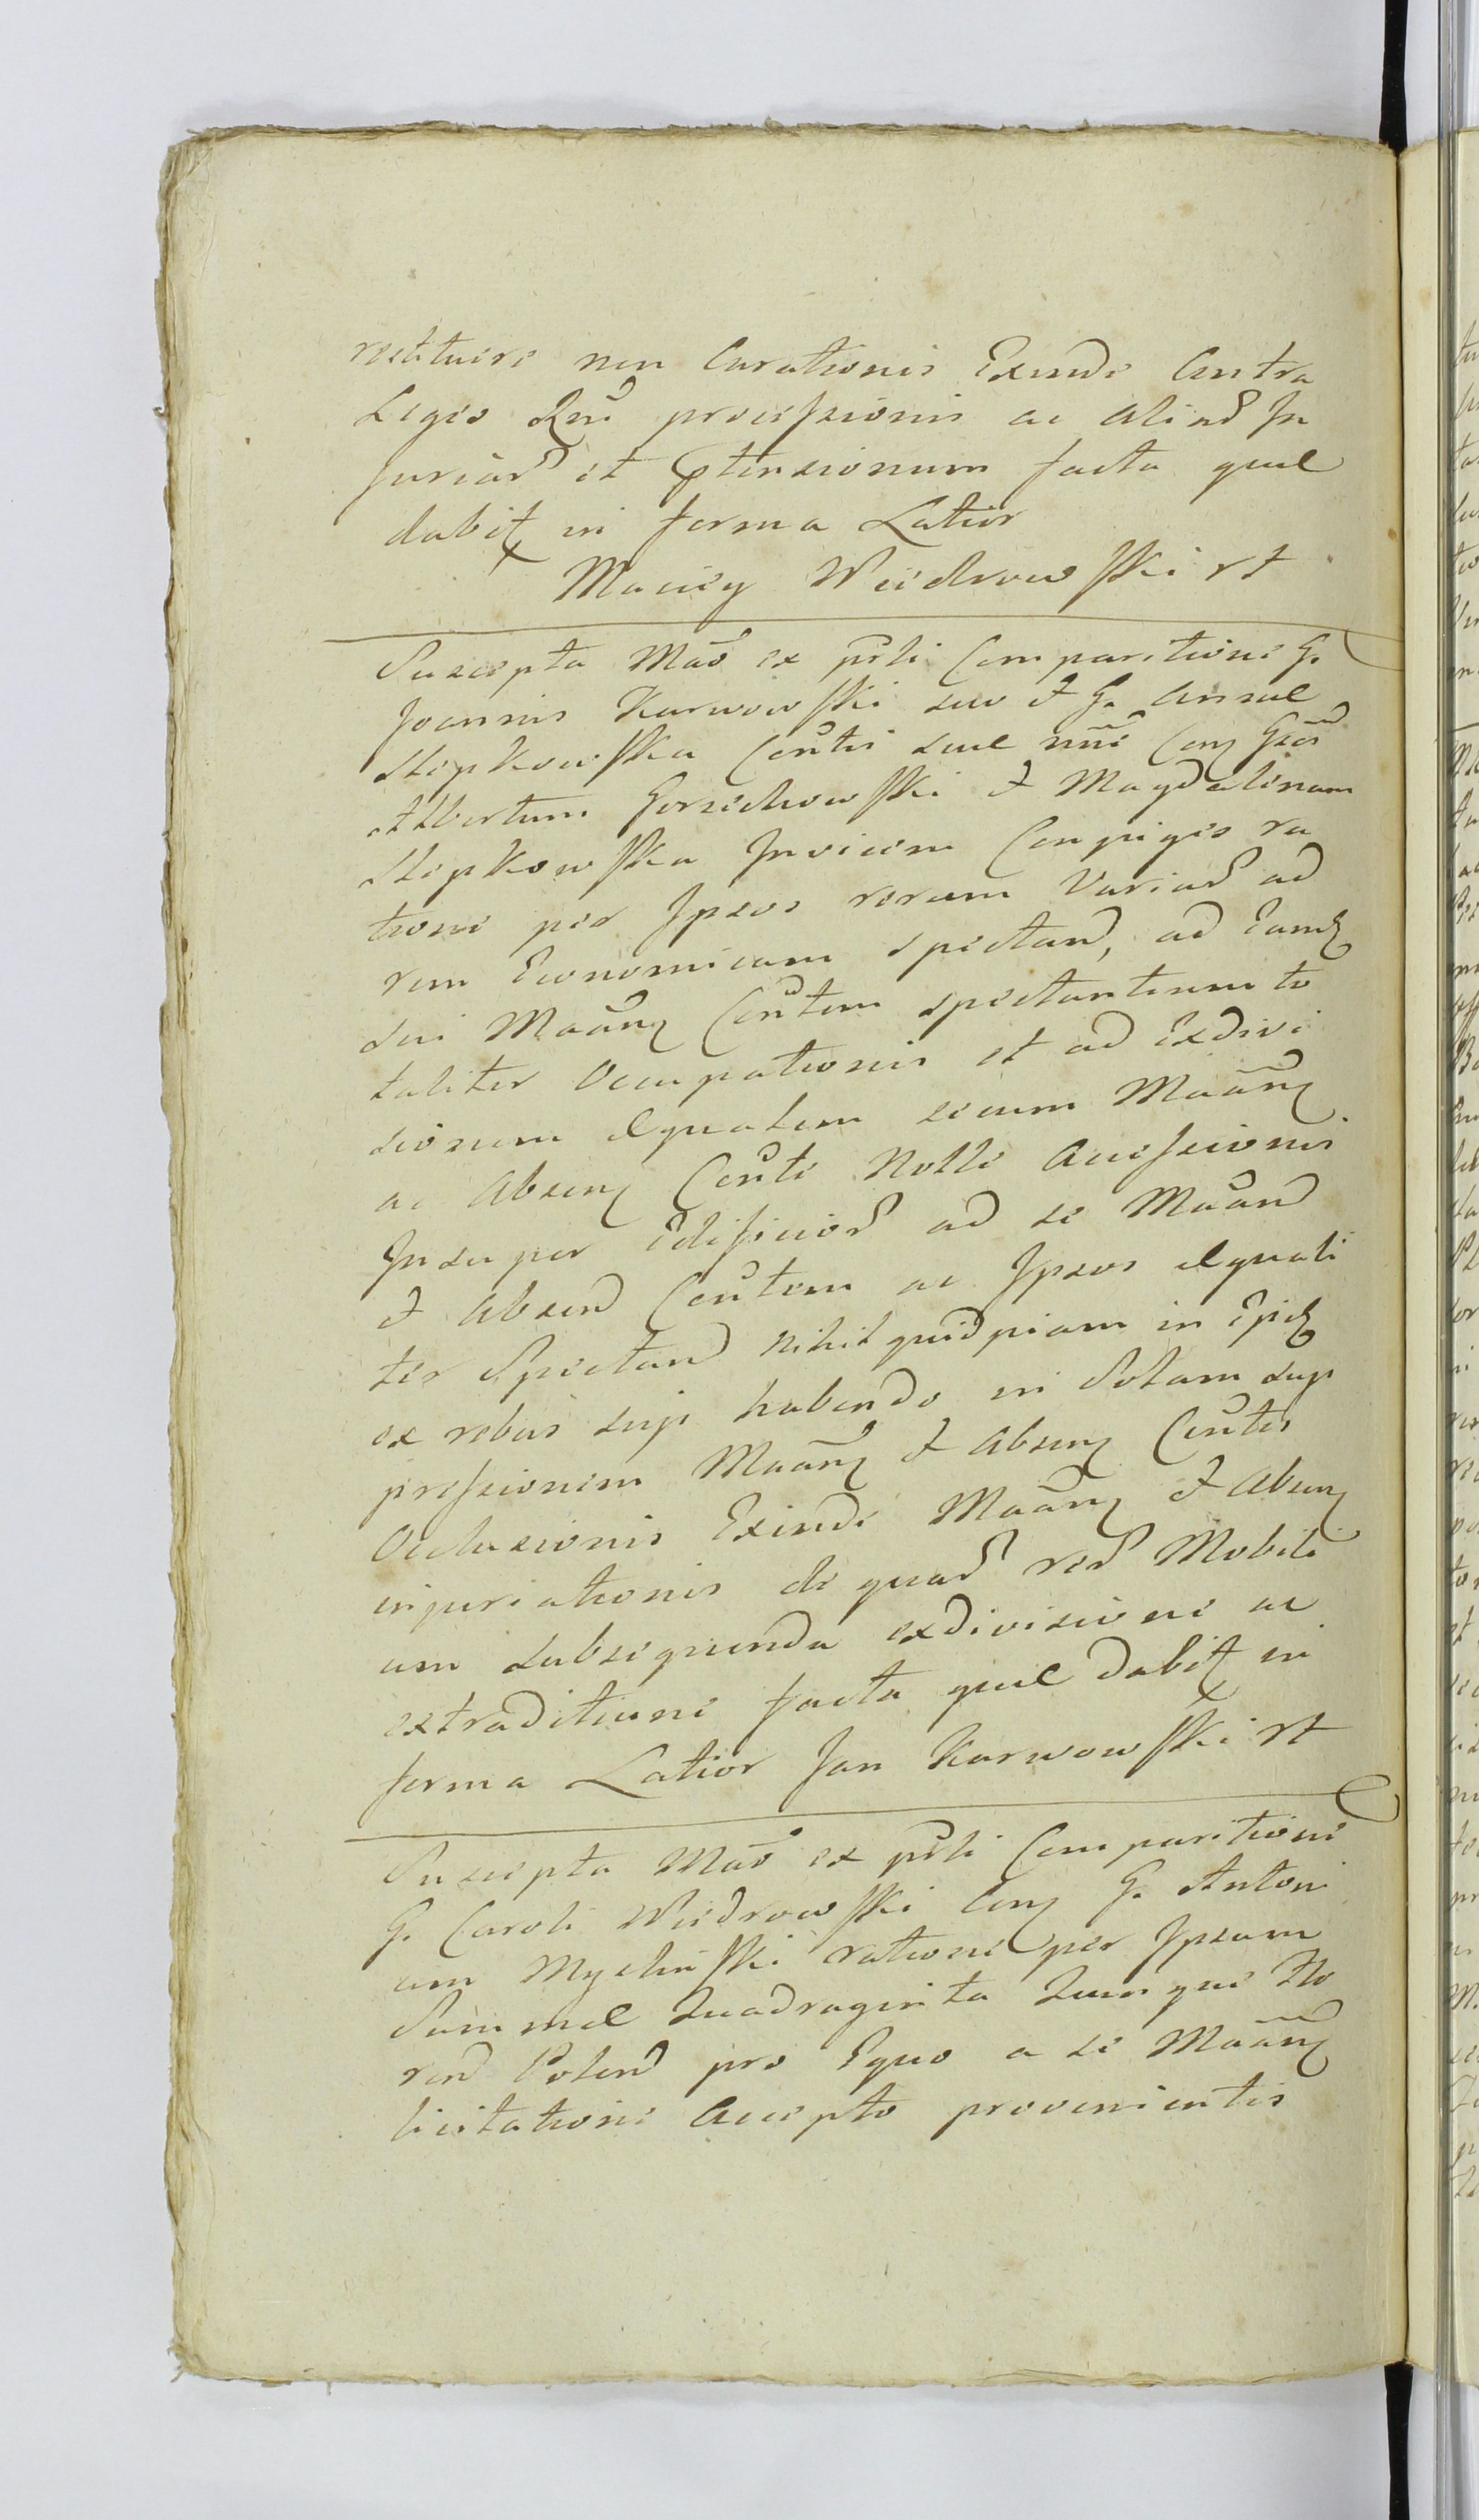 restituere non Curationis Exinde Contra
Leges Rni processionis ac aliad In
juriar et Ptensionum facta quæ
dabit in forma Latior
Maciey Wiedrowski rt
Suscepta Mās ex pñli Comparitione G.
Joannis Karwowski suo et G. Annæ
Stepkowska Conτis suæ nnē Con Gsōs
Albertum Gorzechowski et Magdalenam
Stepkowska Invicem Conjuges ra
tione per Ipsos rerum Variar ad
rem Economicam spectan, ad Eamq
sui Maãn Conτem spectantium to
taliter Occupationis et ad Exdivi
sionem æqualem secum Maãn
ac Absen Conτe Nolle Accessionis
Insuper Edificior ad se Maãn
et Absen Conτem ac Ipsos æquali
ter Spectan nihil quidpiam in
ex rebus supi habendo in Solam sup
pressionem Maãn et Absen Conτis
Occlusionis Exinde Maãn et Absen
injuriationis de quar rer Mobili
um subsequenda exdivisione ac
extraditione facta quæ dabit in
forma Latior Jan Karwowski rt
Suscepta Mās ex pñli Comparitione
G. Caroli Wiedrowski Con G. Antoni
um Myslinski ratione per Ipsum
Summæ Quadraginta Quinque Flo
ren Polen pro Equo a se Maãn
licitatione Accepto provenientis